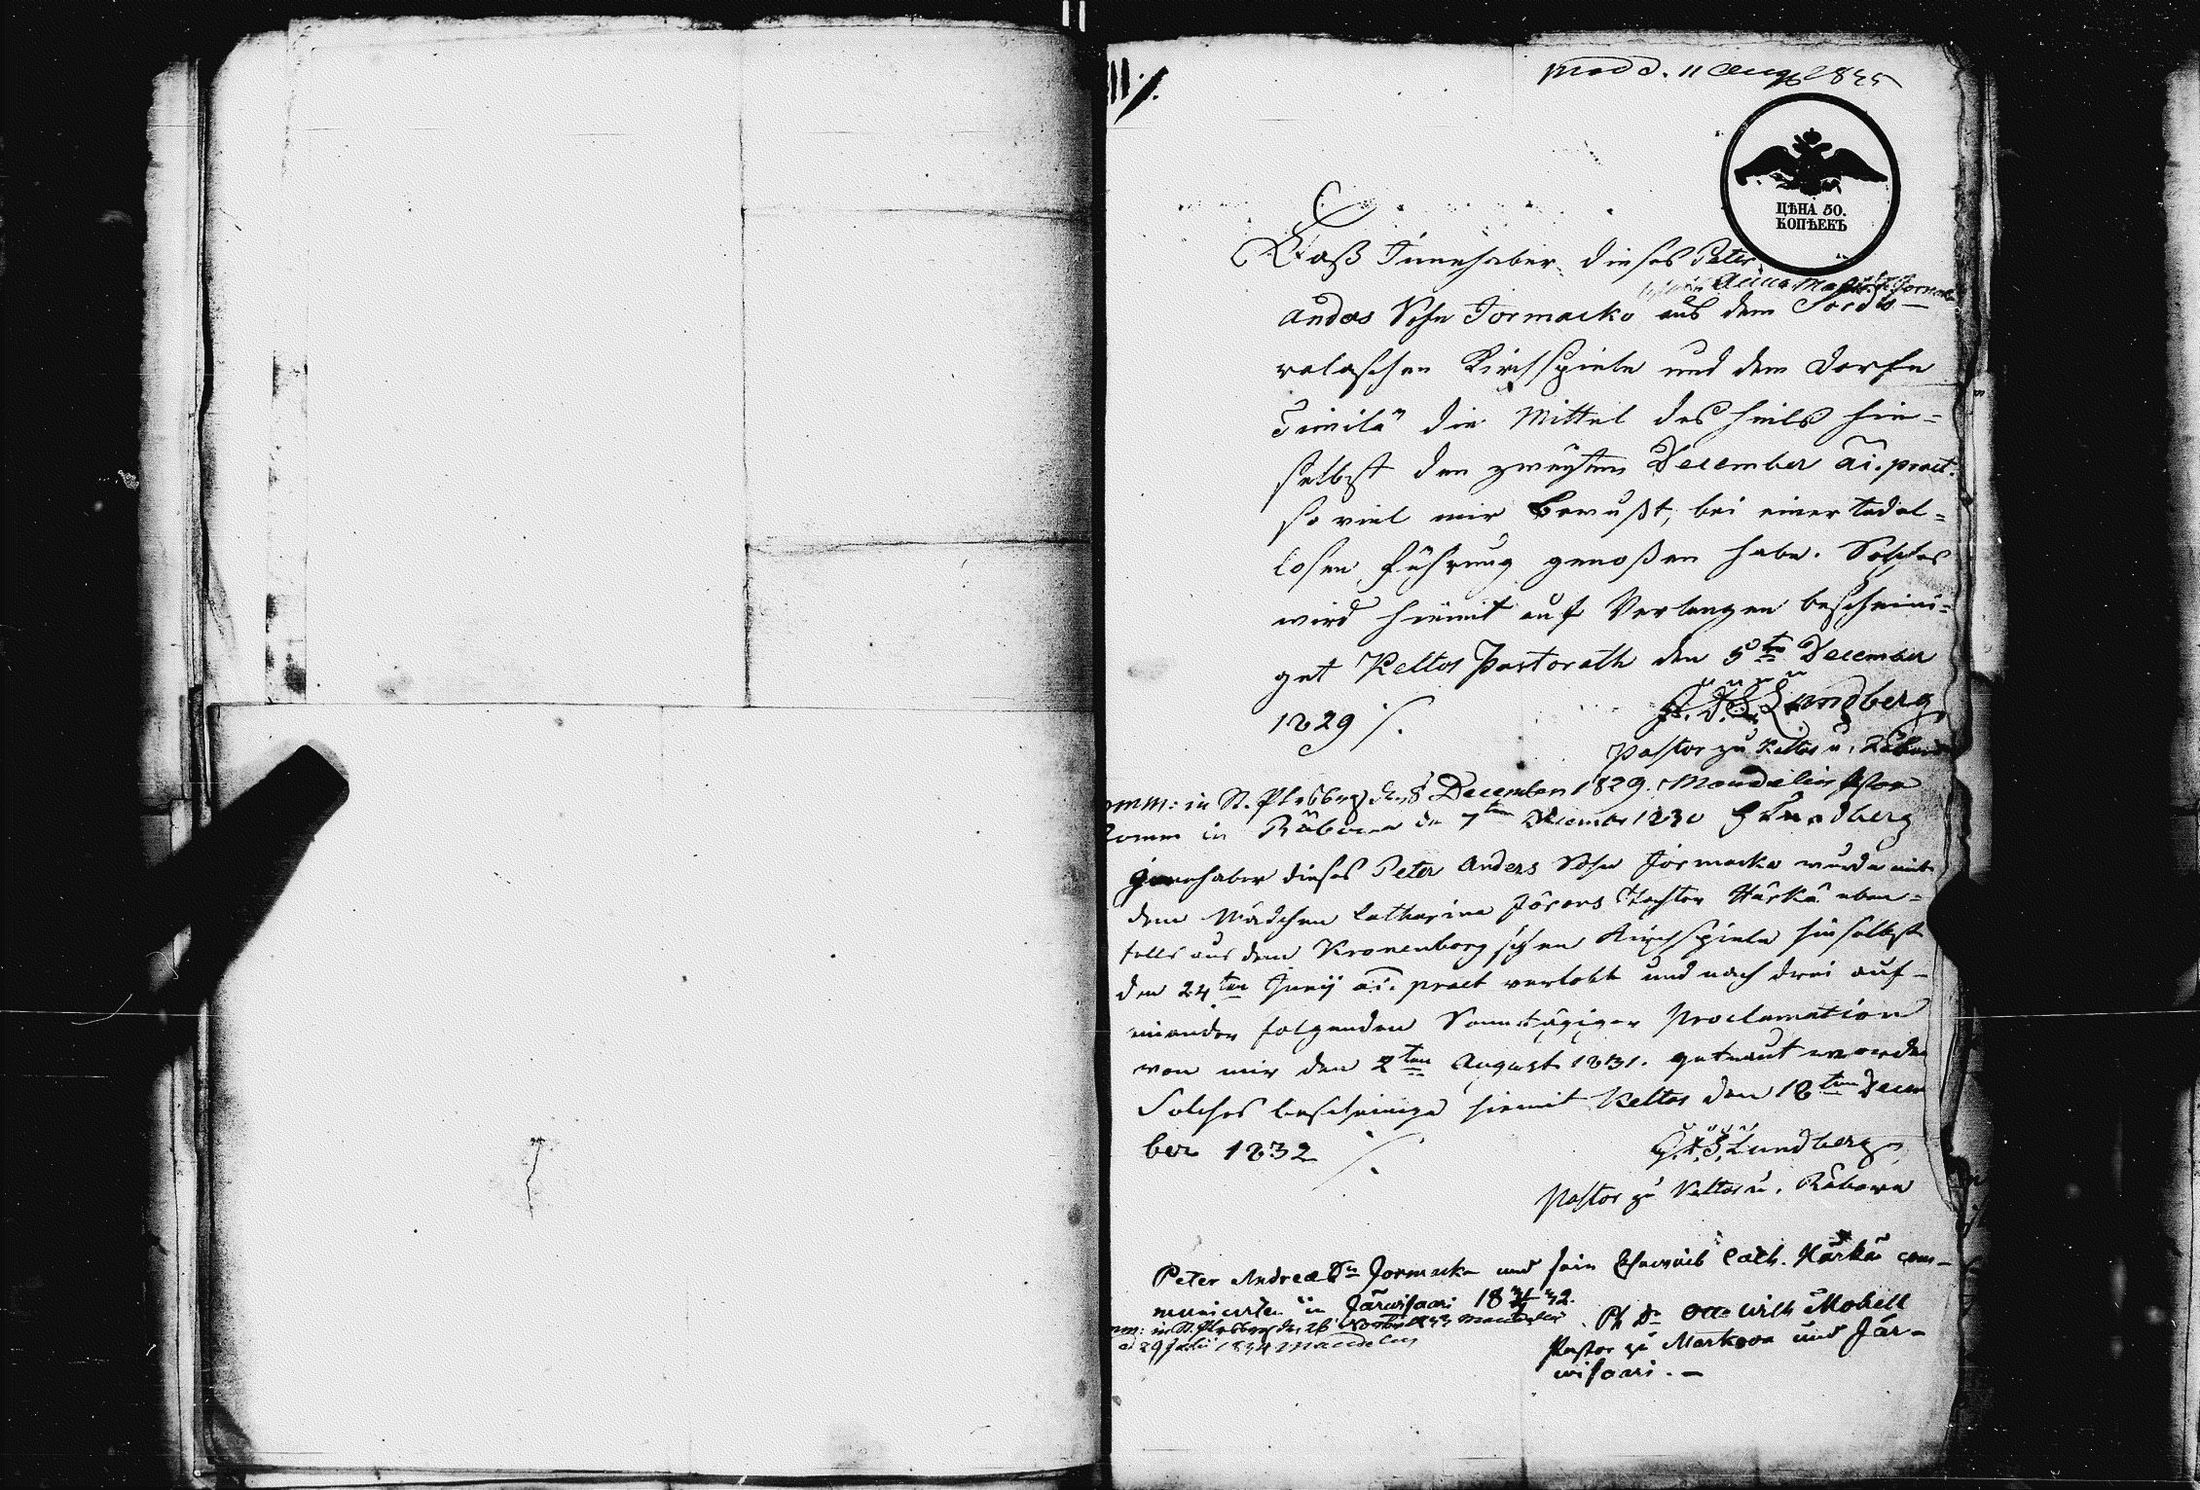 prod d. 11 Aug 1835
ЦѢНА 50.
КОПѢЕКЪ
Daß Innehaber dieses Peter
Anna
Anders Sohn Jormacko aus dem Sordo-
valaschen Kirchspiele und dem Dorfe
die Mittel des Heils hie=
selbst den zweyten December a͞i. praet.
so viel mir bewußt, bei einer tadel=
losen Führung genoßen habe. Solches
wird hiemit auf Verlangen bescheini=
get Keltos Pastorath den 5ten December
1829 ⁒.
Lundberg
Pastor zu Keltos u. Räbova
omm: in St. Ptrsbrg d. 8 December 1829. Mandelin Pstor
Comm in Räbova d 7ten December 1830 G Lundberg
Innehaber dieses Peter Anders Sohn Jormacko wurde mit
dem Mädchen Catharina Jörans Tochter Härkä eben=
falls aus dem Kronenborgschen Kirchspiele hieselbst
den 24ten Junij a͞i. praet verlobt und nach drei auf-
einander folgenden Sonntägiger Proclamation
von mir den 2ten August 1831. getraut worden
Solches bescheinige hiemit Keltos den 18ten Decem
ber 1832 ⁒
Lundberg
Pastor zu Keltos u. Räbova
Peter Andreae Sn Jormacko und sein Eheweib Cath. Härkä com-
municirten in Järwisaari 18 32.
mm: in St. Ptrsbrg d. 26 Mandelin
d 29 Julii 1834 Mandelin
Otto Wilh Mobell
Pastor zu Markova und Jär-
wisaari. -